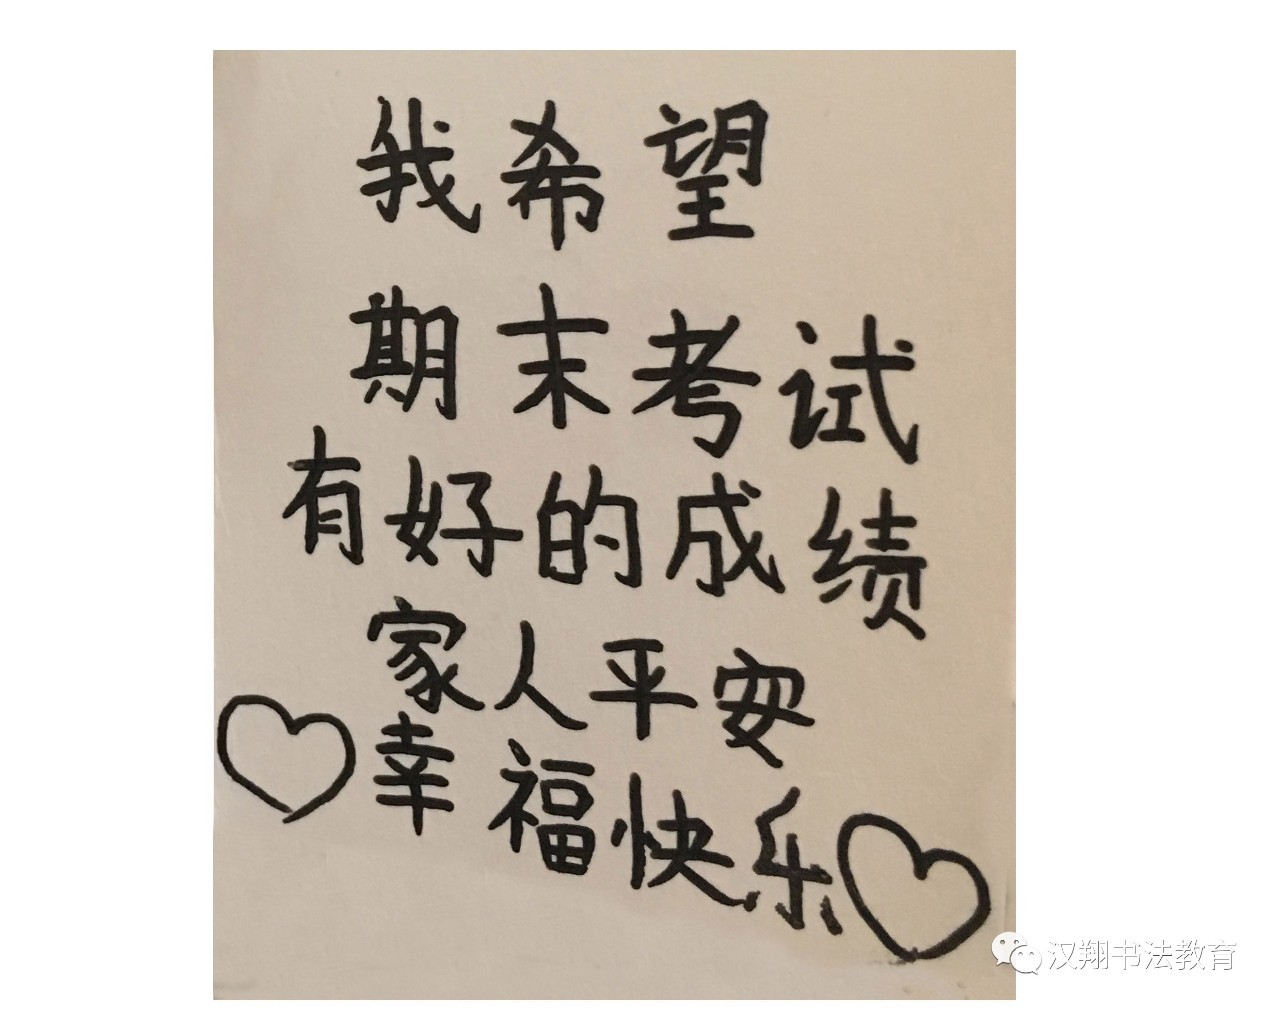 我希望
期末考试
有好的成绩
家人平安
幸福快乐
汉翔书法教育